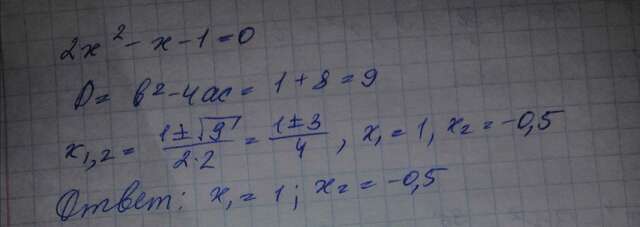 2x² - x - 1 = 0
D = b² - 4ac = 1 + 8 = 9
x₁,₂ = (1 ± √9)/(2·2) = (1 ± 3)/4, x₁ = 1, x₂ = -0,5
Ответ: x₁ = 1; x₂ = -0,5